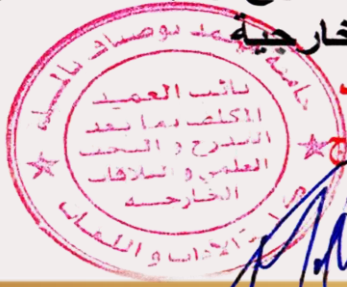 خارجية
جامعة محمد بوضياف بالمسيلة
نائب العميد
المكلف بما بعد
التدرج و البحث
العلمي و العلاقات
الخارجية
كلية الآداب و اللغات